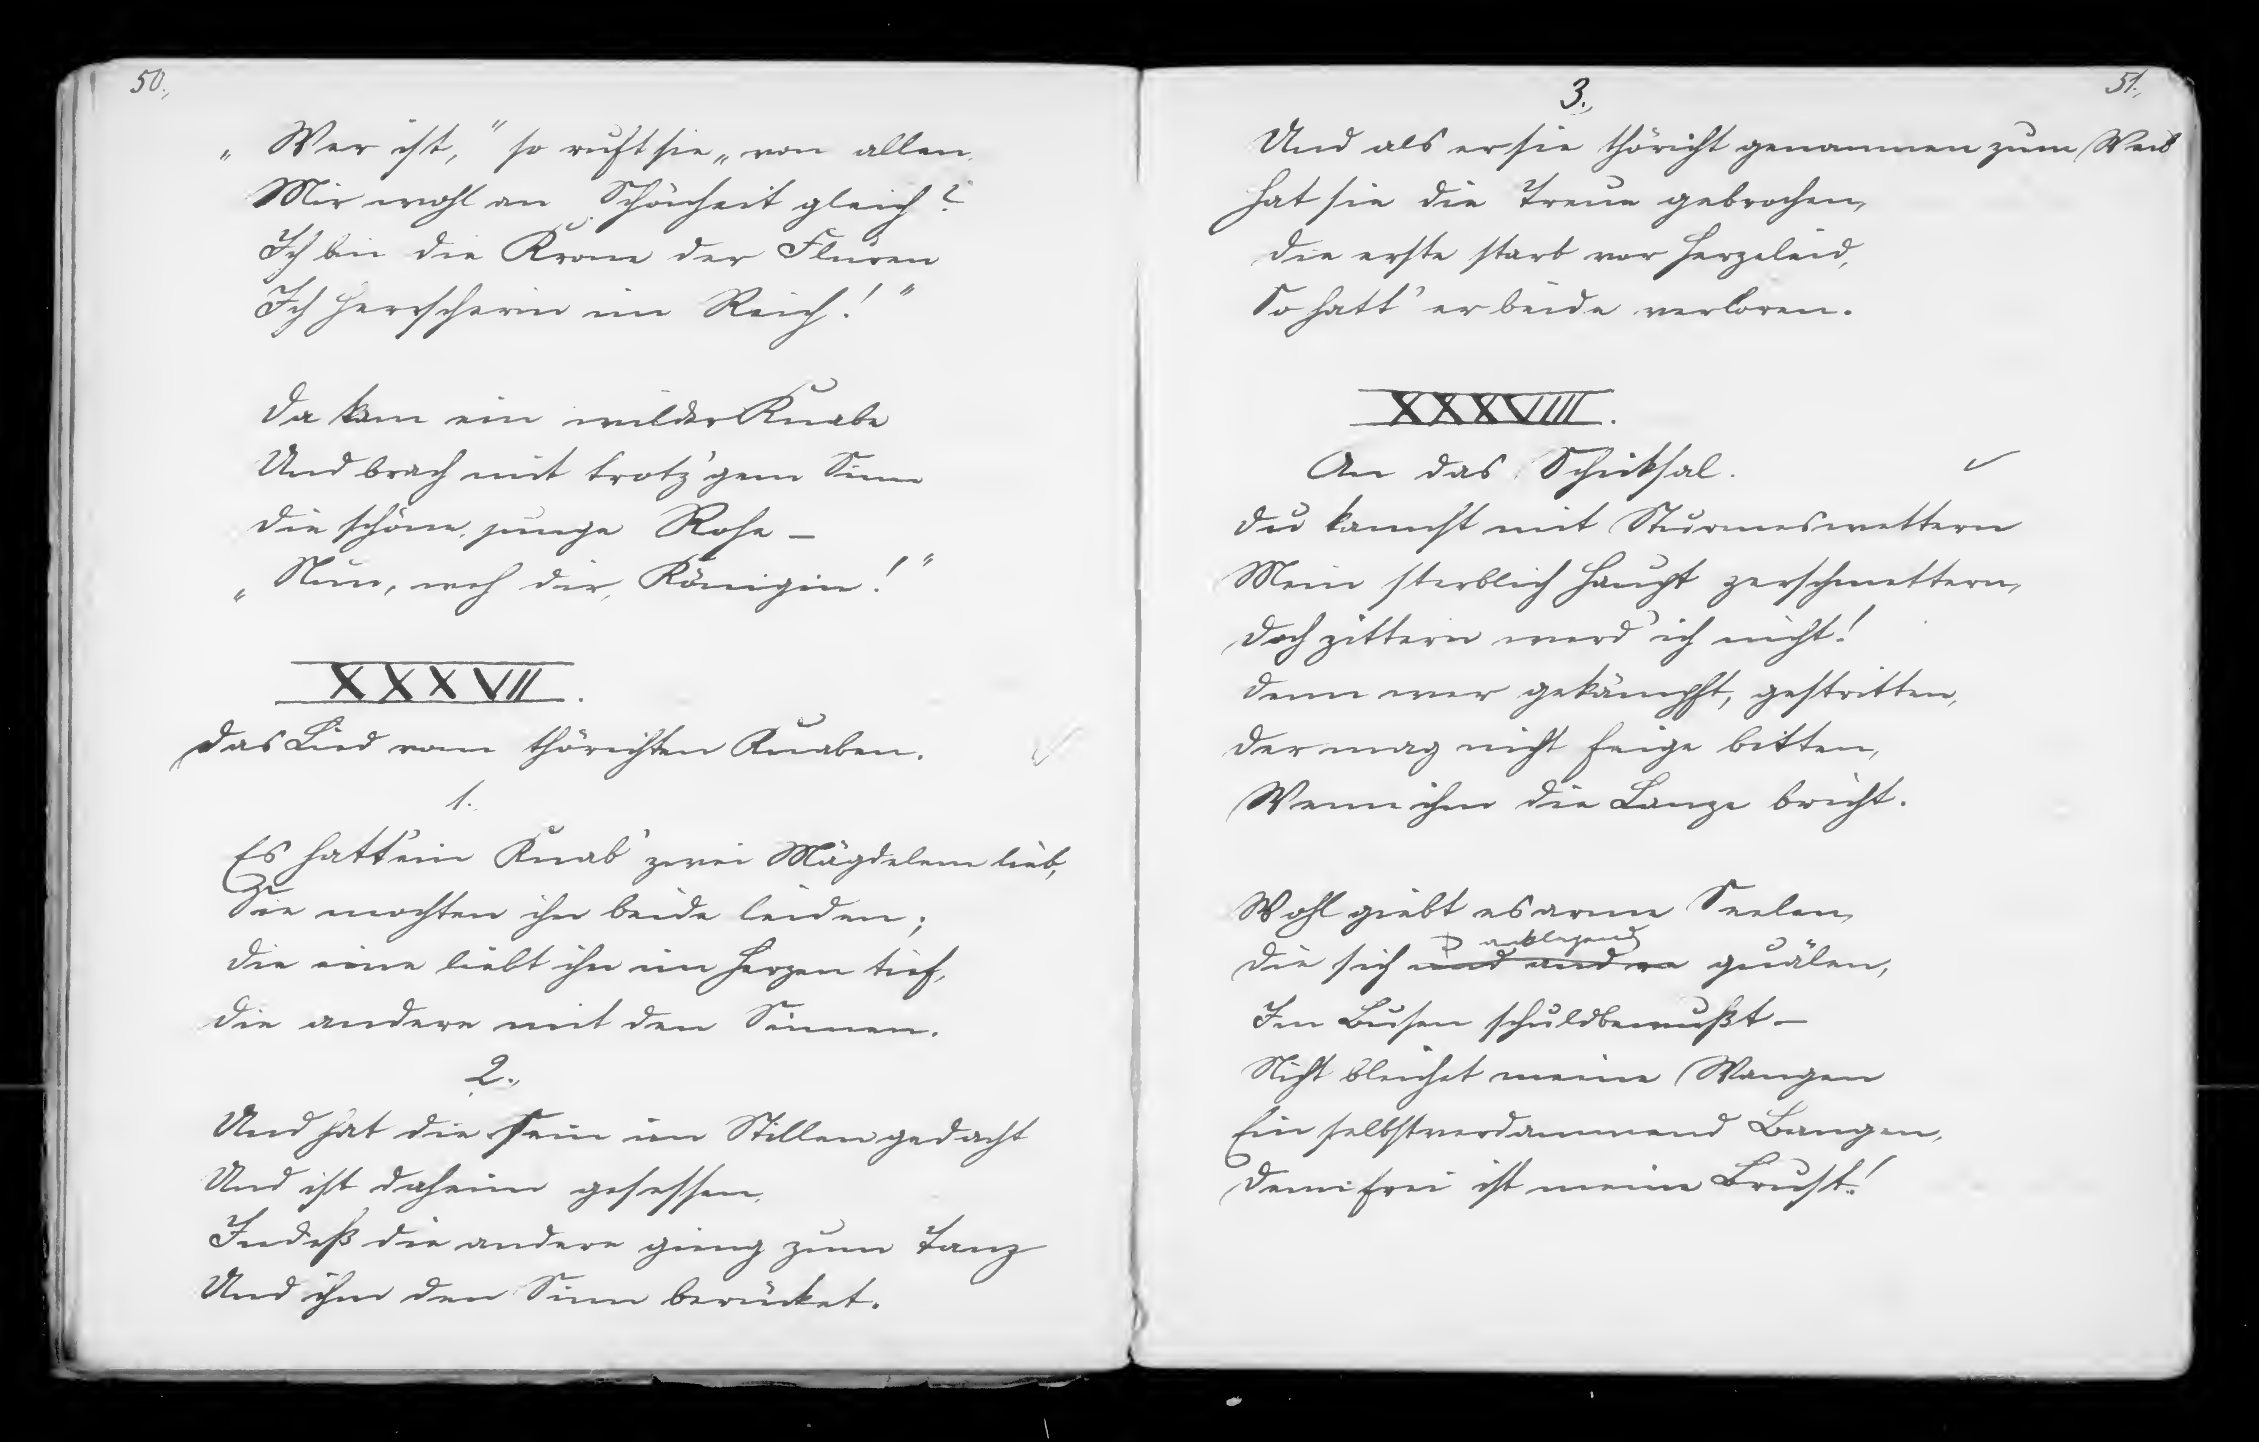 50.,
„Wer ist,“ so ruft sie „von allen
Mir wohl an Schönheit gleich?
Ich bin die Krone der Fluren
Ich Herrscherin im Reich!“
Da kam ein wilder Knabe
Und brach mit trotz'gem Sinn
Die schöne, junge Rose –
„Nun, weh dir, Königin!“
XXXVII.
Das Lied vom thörichten Knaben.
1.
Es hatt' ein Knab' zwei Mägdelein lieb,
Sie mochten ihn beide leiden;
Die eine liebt ihn im Herzen tief,
Die andere mit den Sinnen.
2.,
Und hat die sein im Stillen gedacht
Und ist daheim gesessen,
Indeß die andere gieng zum Tanz
Und ihm den Sinn berücket.
51.,
3.,
Und als er sie thöricht genommen zum Weib
Hat sie die Treue gebrochen,
Die erste starb vor Herzeleid,
So hatt' er beide verloren.
XXXVIII.
An das Schicksal.
Du kannst mit Sturmeswettern
Mein sterblich Haupt zerschmettern,
Doch zittern werd' ich nicht!
Denn wer gekämpft, gestritten,
Der mag nicht feige bitten,
Wenn ihm die Lanze bricht.
Wohl giebt es arme Seelen,
anklagend
Die sich und andre quälen,
Im Busen schuldbewußt –
Nicht bleichet meine Wangen
Ein selbstverdammend Bangen,
Denn frei ist meine Brust!